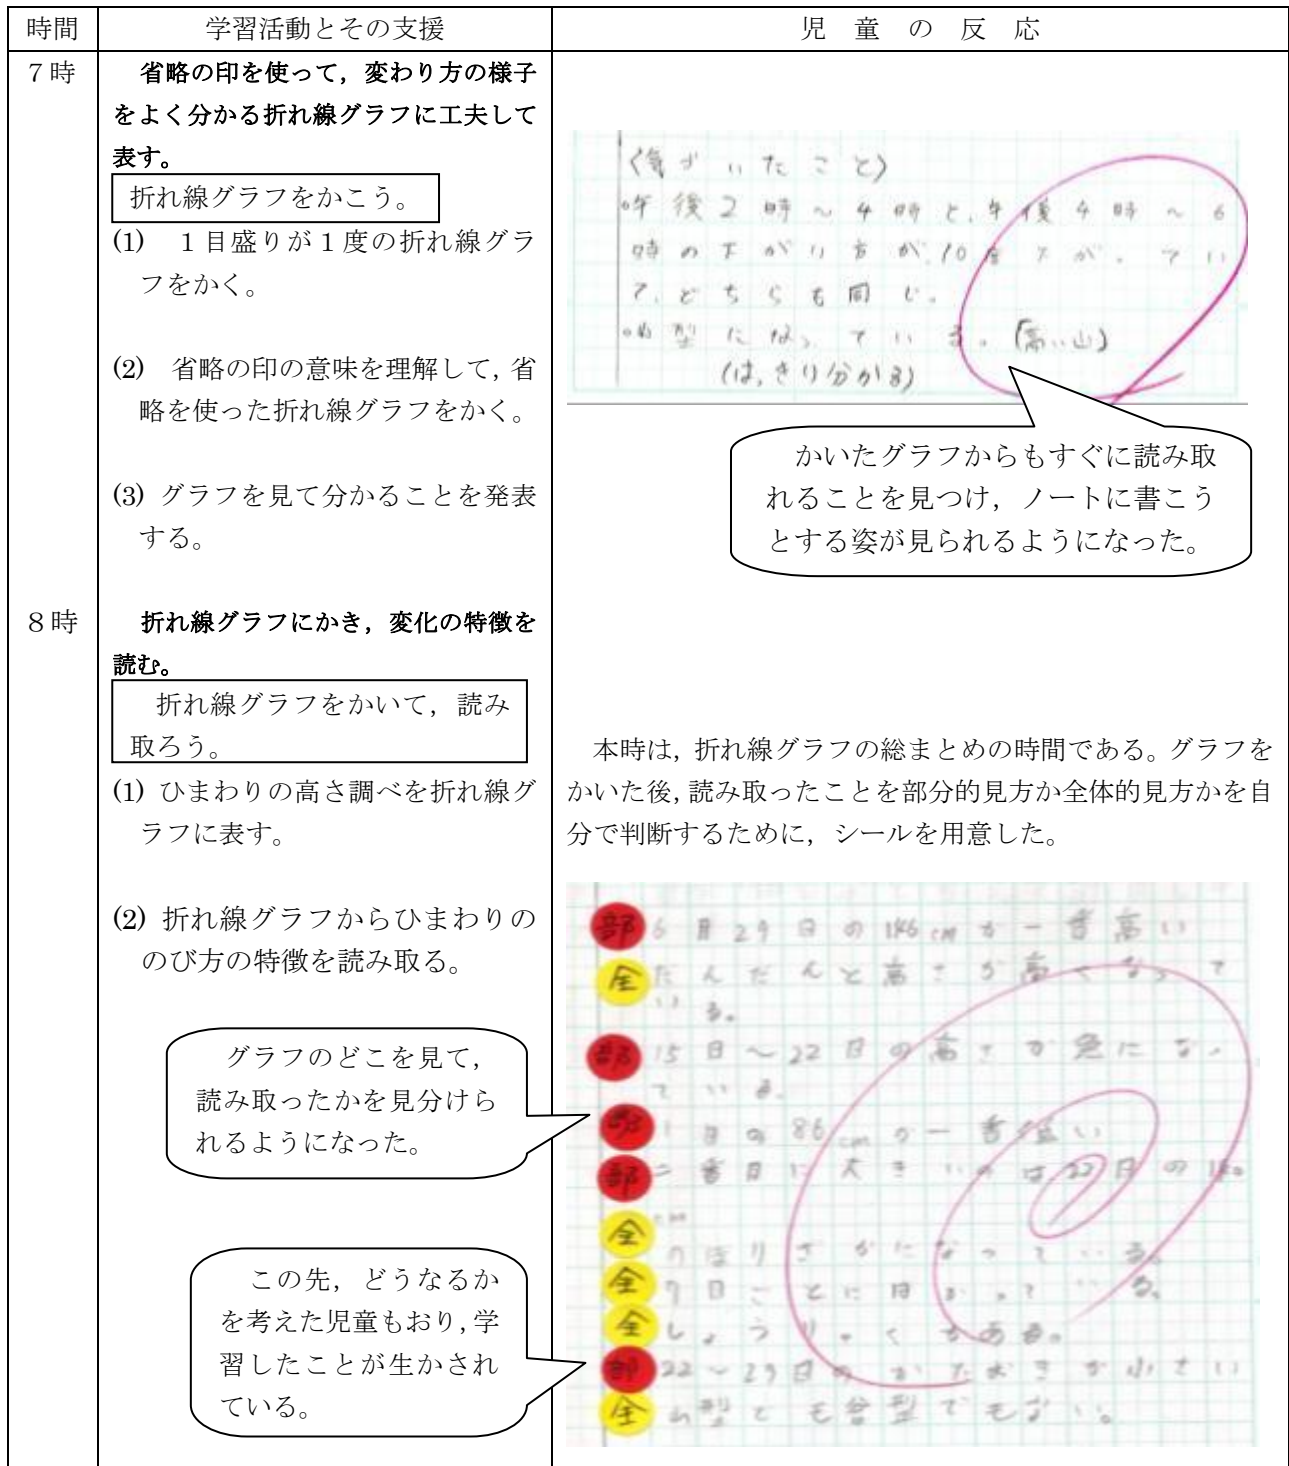 時間 学習活動とその支援 児 童 の 反 応
7時 省略の印を使って，変わり方の様子
をよく分かる折れ線グラフに工夫して
表す。
折れ線グラフをかこう。
(1) 1目盛りが1度の折れ線グラ
フをかく。
(2) 省略の印の意味を理解して，省
略を使った折れ線グラフをかく。
(3) グラフを見て分かることを発表
する。
〈気づいたこと〉
午後2時～4時と、午後4時～6
時の下がり方が、10度下がってい
て、どちらも同じ。
山型になっている。(高い山)
(はっきり分かる)
かいたグラフからもすぐに読み取
れることを見つけ，ノートに書こう
とする姿が見られるようになった。
8時 折れ線グラフにかき，変化の特徴を
読む。
折れ線グラフをかいて，読み
取ろう。
(1) ひまわりの高さ調べを折れ線グ
ラフに表す。
(2) 折れ線グラフからひまわりの
のび方の特徴を読み取る。
グラフのどこを見て，
読み取ったかを見分けら
れるようになった。
この先，どうなるか
を考えた児童もおり，学
習したことが生かされ
ている。
本時は，折れ線グラフの総まとめの時間である。グラフを
かいた後，読み取ったことを部分的見方か全体的見方かを自
分で判断するために，シールを用意した。
部 6月29日の146cmが一番高い
全 だんだんと高さが高くなって
いる。
部 15日～22日の高さが急になっ
ている。
部 1日の86cmが一番低い
部 二番目に大きいのは22日の
cm
全 のぼりざかになっている。
全 7日ごとに日が
全 しょうりゃくもある。
部 22～29日のかたむきが小さい
全 山型でも谷型でもない。